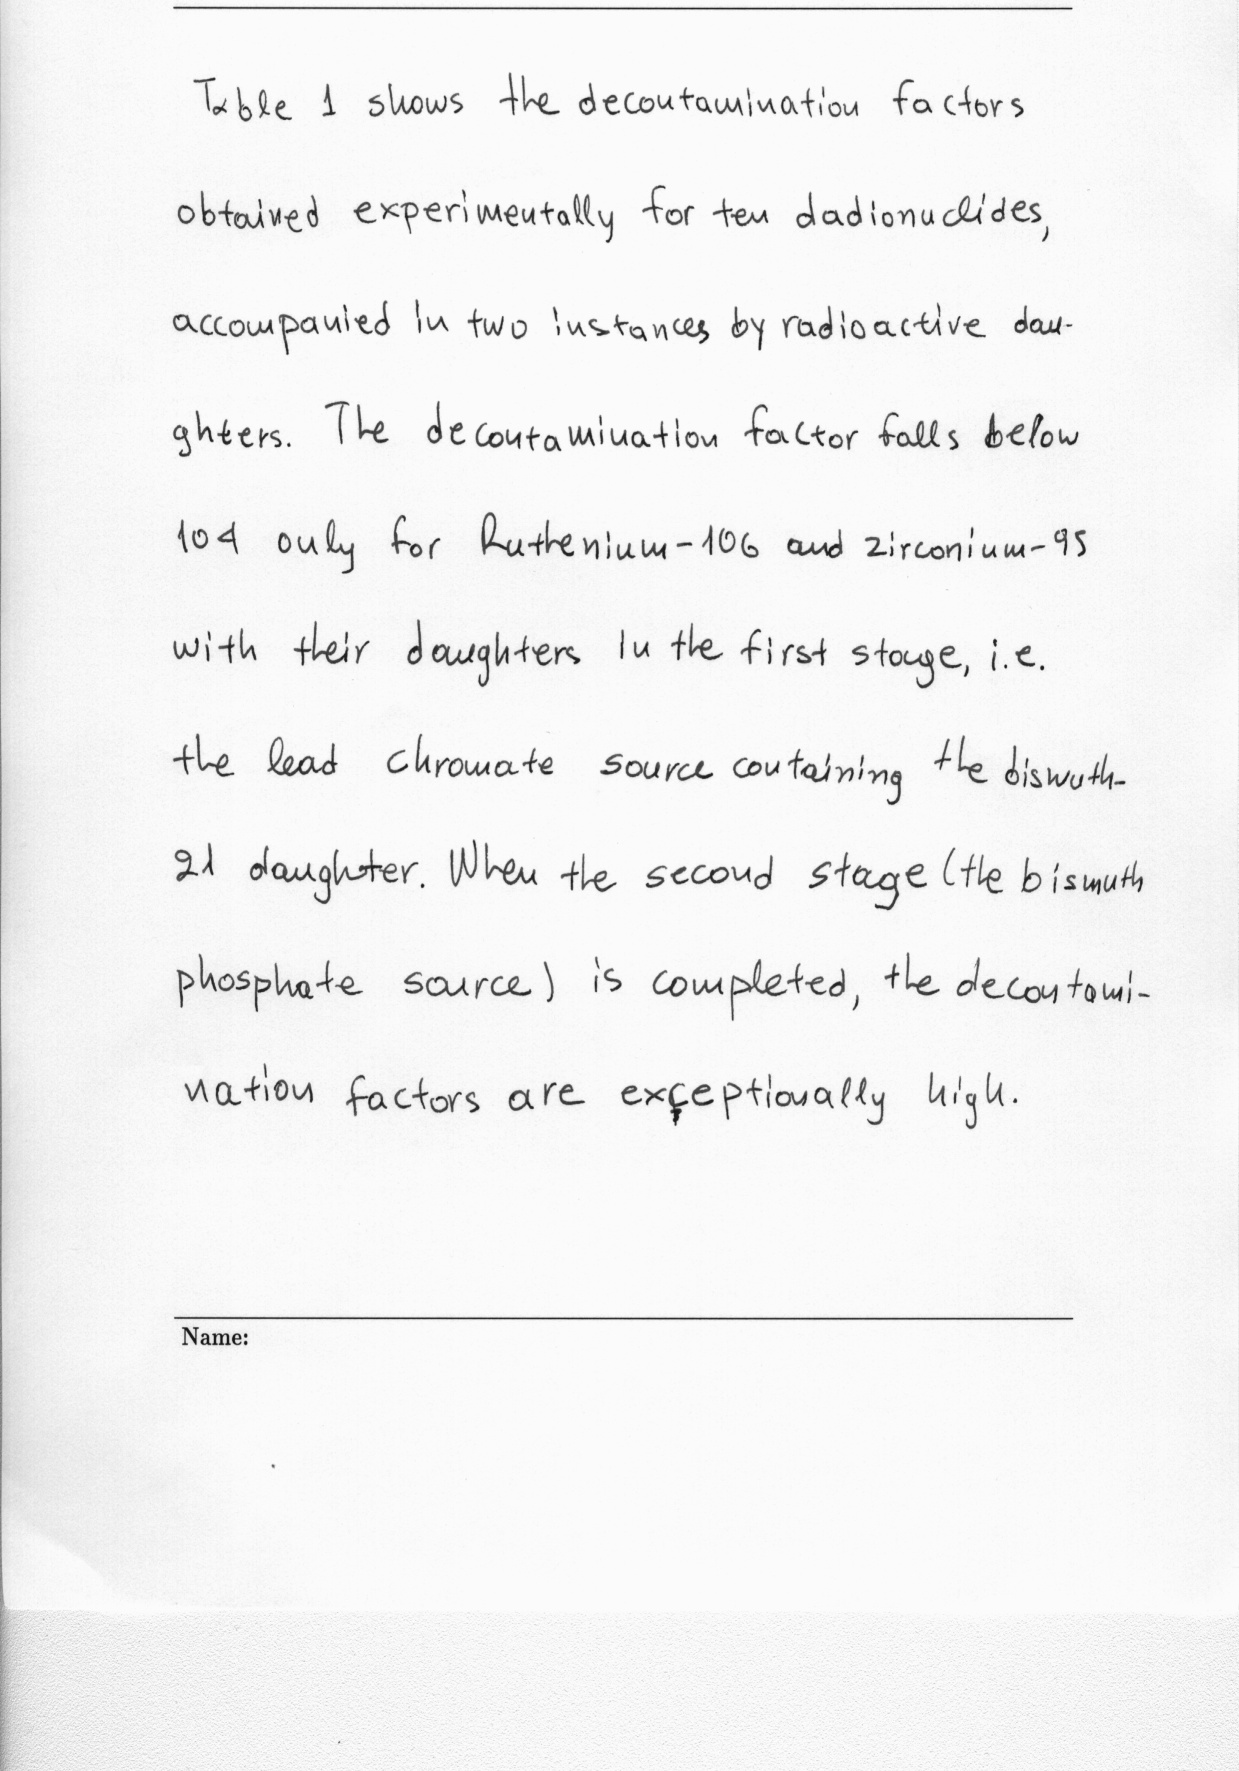 Table 1 shows the decontamination factors
obtained experimentally for ten dadionuclides,
accompanied in two instances by radioactive dau-
ghters. The decontamination factor falls below
104 only for Ruthenium-106 and zirconium-95
with their daughters in the first stage, i.e.
the lead chromate source containing the bismuth-
21 daughter. When the second stage (the bismuth
phosphate source) is completed, the decontami-
nation factors are exceptionally high.
Name: